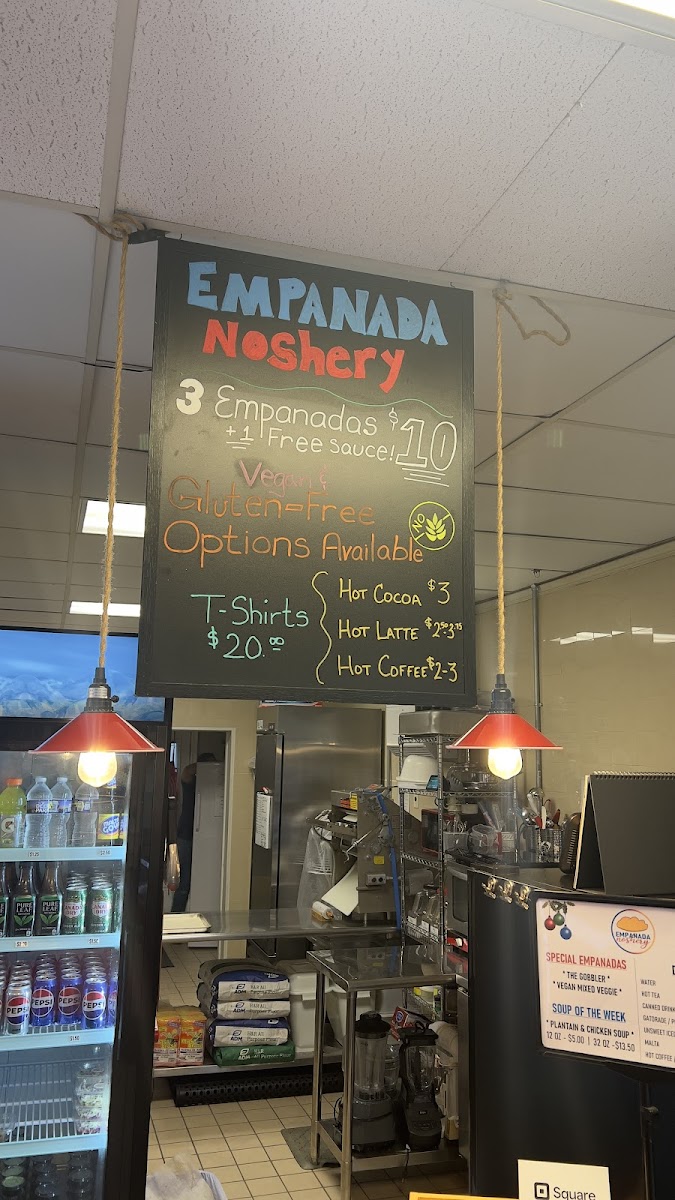 EMPANADA
Noshery
3 Empanadas $10
+1 Free Sauce!
Vegan &
Gluten-Free
Options Available
NO
T-Shirts
$20.00
Hot Cocoa $3
Hot Latte $2.50-3.75
Hot Coffee $2-3
EMPANADA
noshery
SPECIAL EMPANADAS
* THE GOBBLER *
* VEGAN MIXED VEGGIE *
SOUP OF THE WEEK
* PLANTAIN & CHICKEN SOUP *
12 OZ - $5.00 | 32 OZ -$13.50
WATER
HOT TEA
CANNED DRIN
GATORADE / P
UNSWEET ICE
MALTA
HOT COFFEE /
PURE LEAF
PURE LEAF
PEPSI
PEPSI
PEPSI
PEPSI
ADM
ADM
ADM
ADM
Square